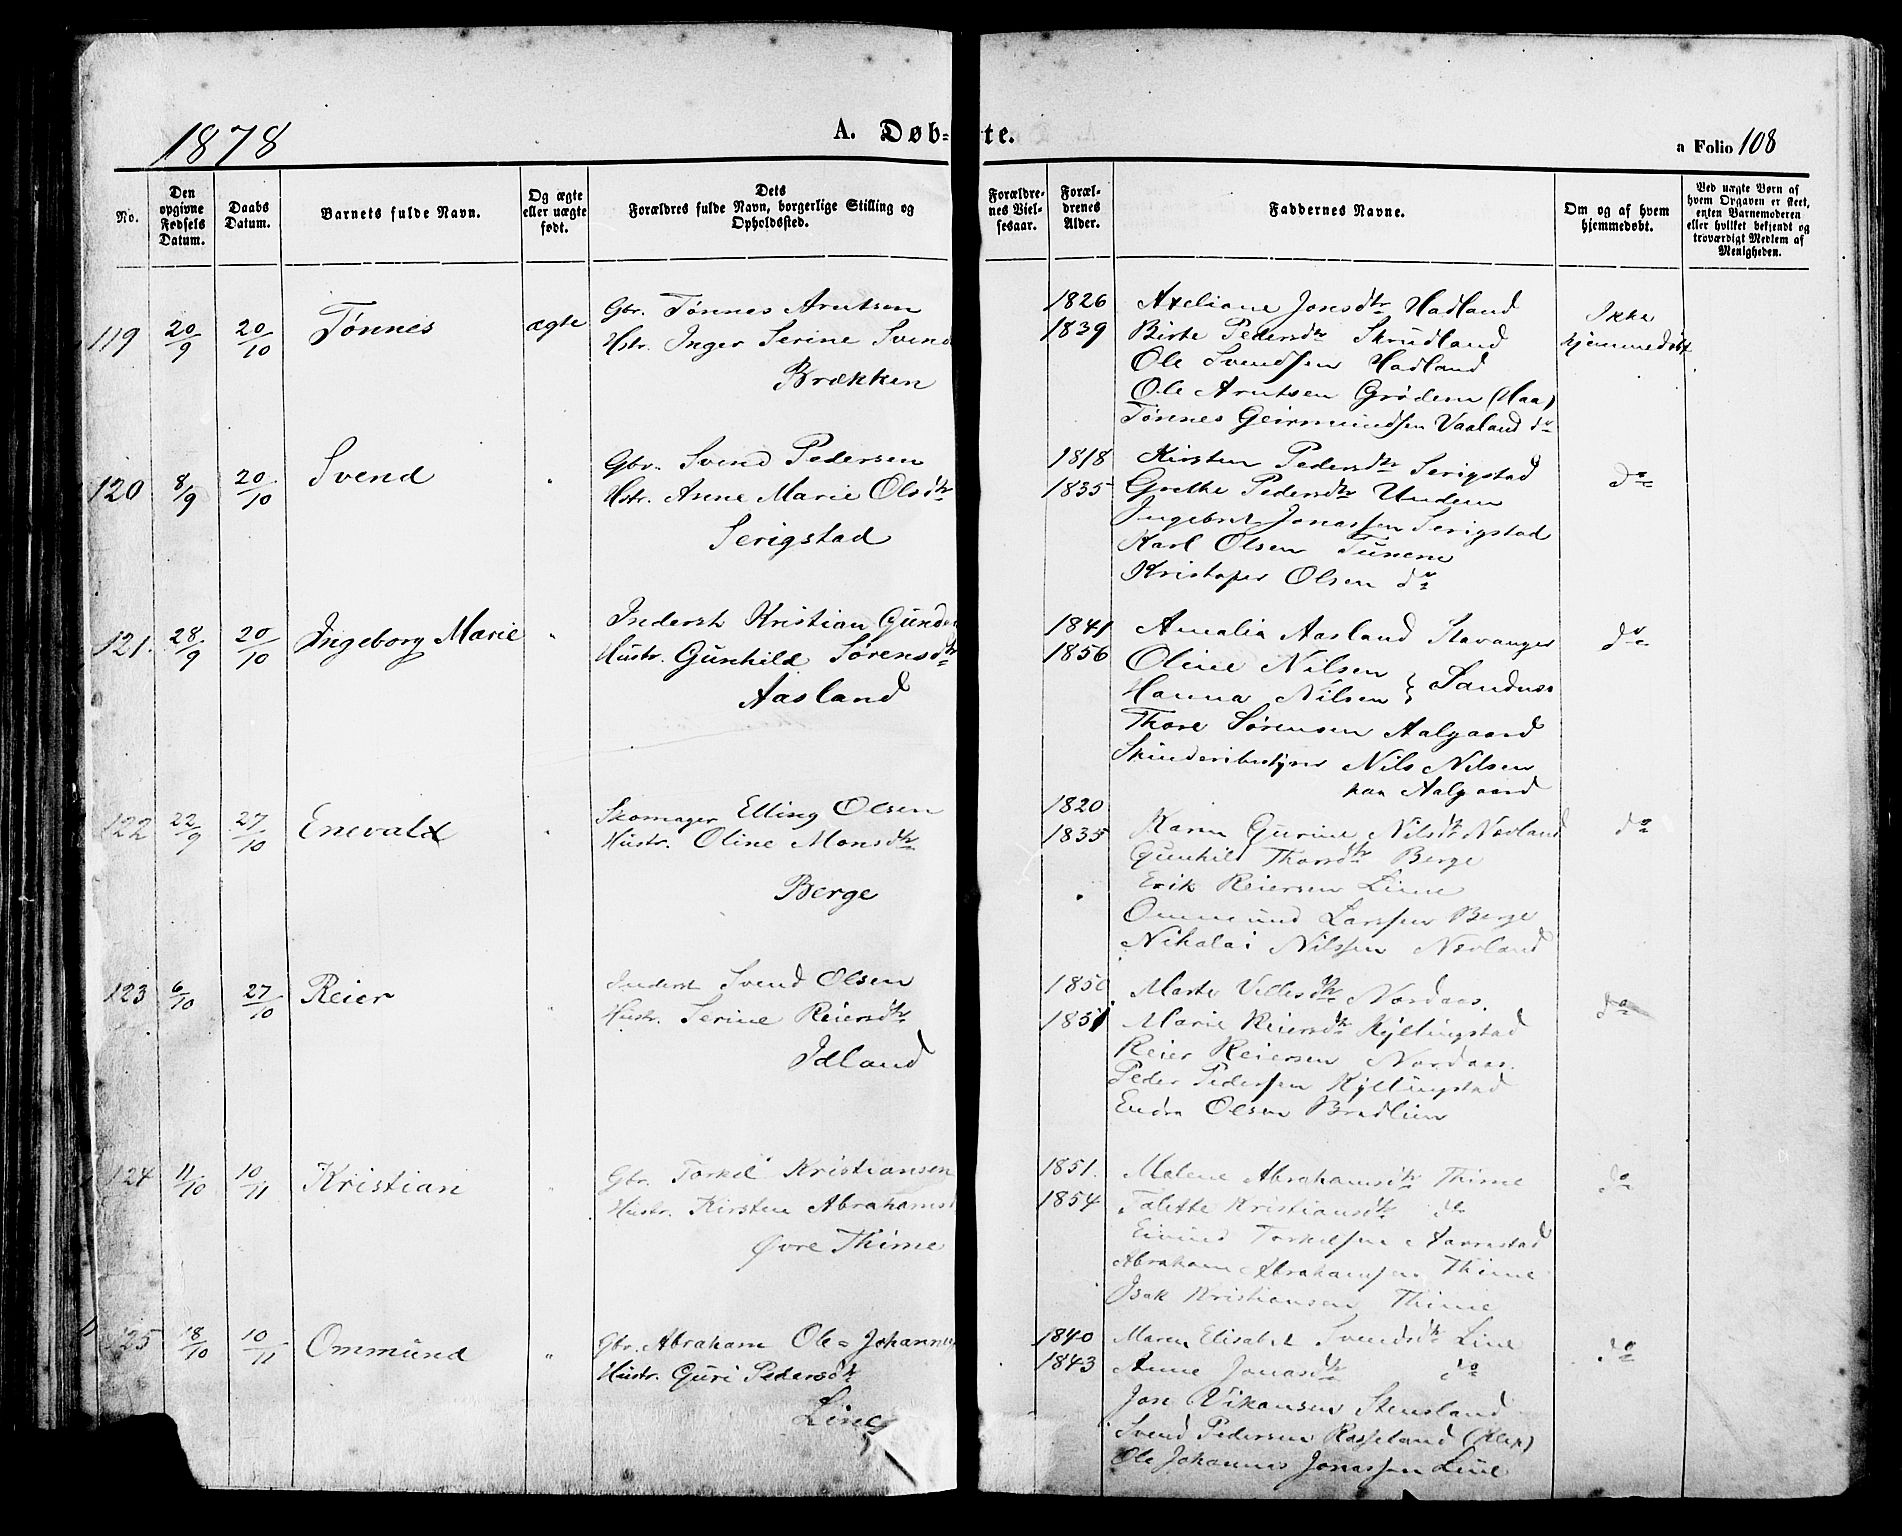 1878
A. Døb- te.
a Folio 108
No.
Den opgivne Fødsels Datum.
Daabs Datum.
Barnets fulde Navn.
Og ægte eller uægte født.
Dets Forældres fulde Navn, borgerlige Stilling og Opholdssted.
Forældrenes Vielsesaar.
Forældrenes Alder.
Faddernes Navne.
Om og af hvem hjemmedøbt.
Ved uægte Børn af hvem Opgaven er skeet, enten Barnemoderen eller hvilket bekjendt og troværdigt Medlem af Menigheden.
119 20/9 20/10 Tønnes ægte
Gbr. Tønnes Arntsen
Hstr. Inger Serine Svend
Brækken
1826
1839
Axeliane Jonsdtr Hadland
Birte Pedersdtr Skrudland
Ole Svendsen Hadland
Ole Arntsen Grødem (Haa)
Tønnes Geirmundsen Vaaland do
Ikke
hjemmedøbt
120 8/9 20/10 Svend "
Gbr. Svend Pedersen
Hstr. Anne Marie Olsdtr
Serigstad
1818
1835
Kirsten Pedersdtr Serigstad
Grethe Pedersdtr Undem
Ingebret Jonassen Serigstad
Karl Olsen Tunene
Kristofer Olsen do
do
121. 28/9 20/10 Ingeborg Marie "
Inderst Kristian Gunder
Hustr. Gunhild Sørensdtr
Aasland
1841
1856
Amalia Aasland Stavanger
Oline Nilsen
Hanna Nilsen } Sandnes
Thore Sørensen Aalgaard
Nils Nilsen
paa Aalgaard
do
122 22/9 27/10 Enevald "
Skomager Elling Olsen
Hustr. Oline Monsdtr
Berge
1820
1835
Karen Gurine Nilsdtr Nævland
Gunhild Thorsdtr Berge
Erik Reiersen Line
Ommund Larssen Berge
Nikolai Nilssen Nævland
do
123 6/10 27/10 Reier "
Inderst Svend Olsen
Hustr. Serine Reiersdtr
Idland
1850
1851
Marte Villesdtr Nordaas.
Marie Reiersdtr Kyllingstad
Reier Reiersen Nordaas.
Peder Pedersen Kyllingstad
Endre Olsen Bradlien
do
124 11/10 10/11 Kristian "
Gbr. Torkel Kristiansen
Hustr. Kirsten Abrahams
Øvre Thime
1851.
1854
Malene Abrahamsdtr Thime
Talette Kristiansdtr do
Eivind Torkelsen Aarrestad
Abraham Abrahamsen Thime
Isak Kristiansen Thime
do
125 18/10 10/11 Ommund "
Gbr. Abraham Ole Johannes
Hustr. Guri Pedersdtr
Line
1840
1843
Maren Elisabet Svendsdtr Line
Anne Jonasdtr do
Jon Vikansen Stensland
Svend Pedersen Rosseland (Klep)
Ole Johannes Jonassen Line
do